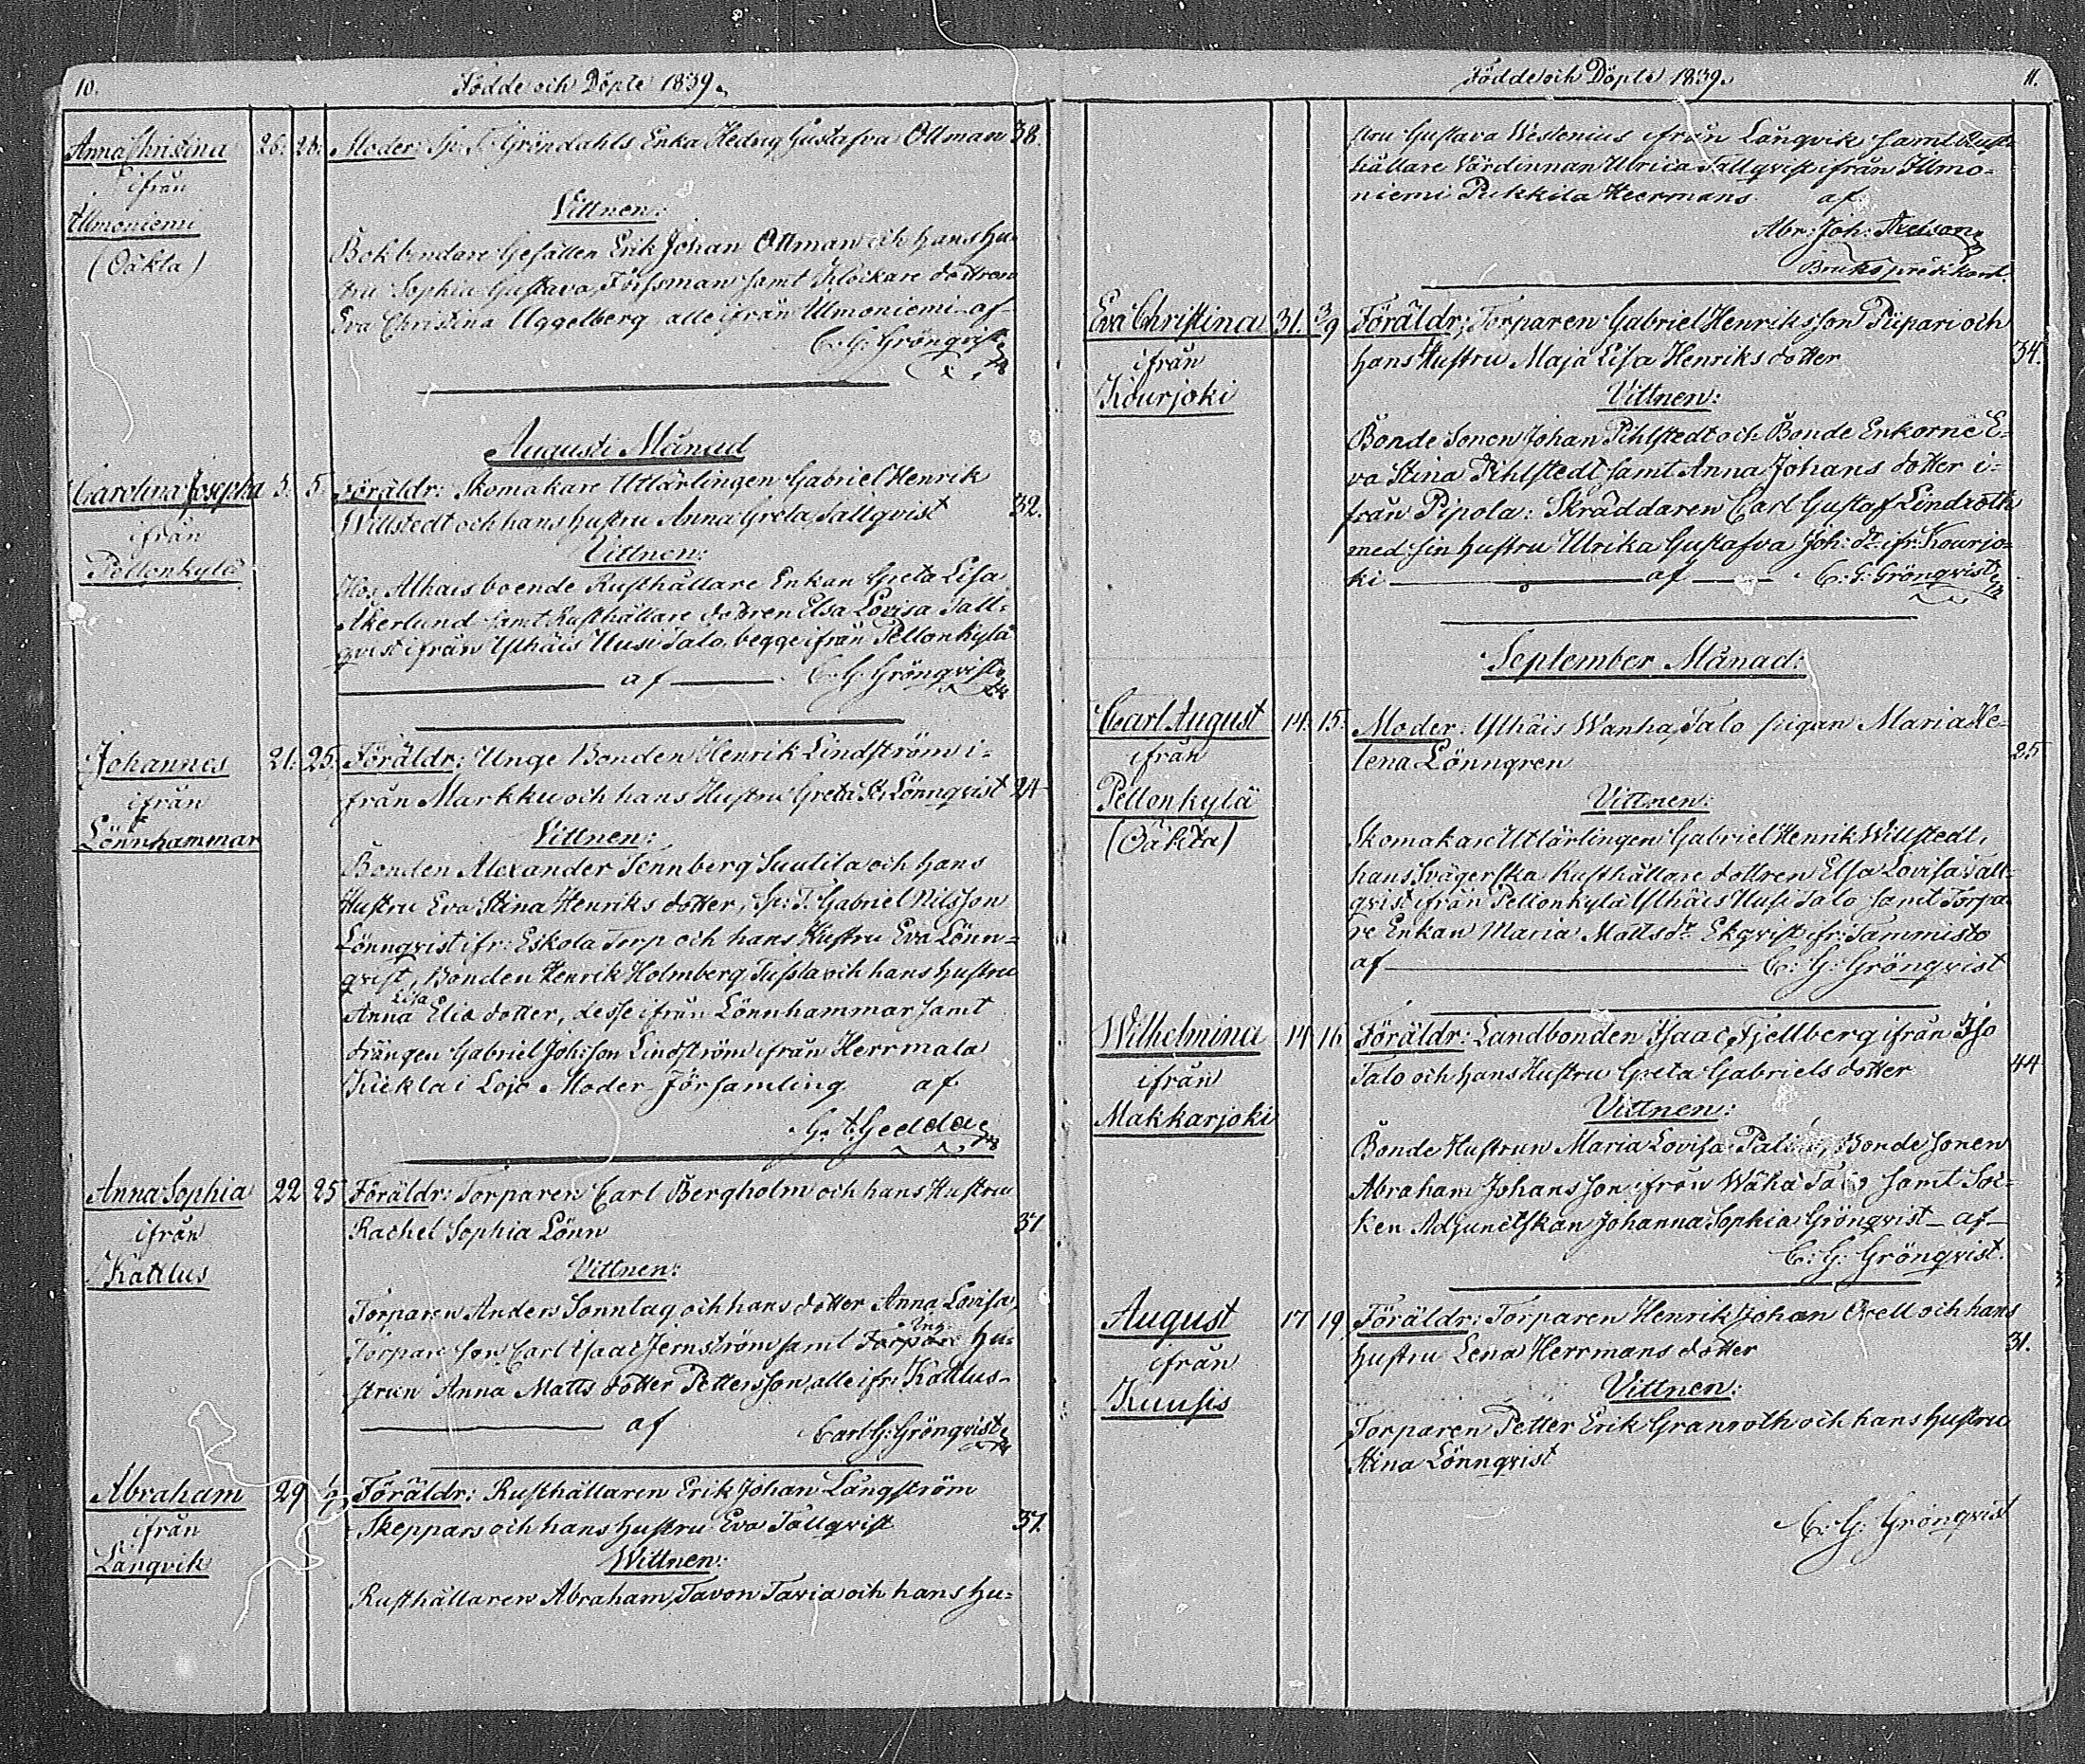 10. Födde och Döpte 1839.
Anna Christina 26. 28. Moder: Sp. T. Gröndahls Enka Hedvig Gustafva Ottman 38.
ifrån
Ulmoniemi
(Oäkta)
Vittnen:
Bokbindare Gesällen Erik Johan Ottman och hans hu-
stru Sophia Gustava Forssman samt Klockare dottren
Eva Christina Uggelberg alle ifrån Ulmoniemi af
C. G. Grönqvist
Augusti Månad
Carolina Josepha 5. 5. Föräldr: Skomakare Utlärlingen Gabriel Henrik
Willstedt och hans hustru Anna Greta Tallqvist 32.
ifrån
Pellonkylä
Vittnen:
Hos Alhais boende Rusthållare Enkan Greta Lisa
Åkerlund samt Rusthållare dottren Elsa Lovisa Tall-
qvist ifrån Ylhäis Uusi Talo begge ifrån Pellonkylä
af C. G. Grönqvist
Johannes 21. 25. Föräldr: Unge Bonden Henrik Lindström i-
från Markku och hans Hustru Greta St. Lönnqvist 24
ifrån
Lönnhammar
Vittnen:
Bonden Alexander Sennberg Suutila och hans
Hustru Eva Stina Henriks dotter, Sp: T. Gabriel Nilsson
Lönnqvist ifr: Eskola Torp och hans Hustru Eva Lönn-
qvist, Bonden Henrik Holmberg Tussla och hans hustru
Lisa
Anna Elia dotter, desse ifrån Lönnhammar samt
drängen Gabriel Joh:sson Lindström ifrån Herrmala
Kiikla i Lojo Moder Församling af
G. A. Gedda
Anna Sophia 22 25 Föräldr: Torparen Carl Bergholm och hans Hustru
Rachel Sophia Lönn 37
ifrån
Kattlus
Vittnen:
Torparen Anders Sonntag och hans dotter Anna Lovisa,
Torpare son Carl Isaac Jernström samt Torpare hu-
strun Anna Matts dotter Pettersson, alle ifr: Kattlus
af Carl G: Grönqvist
Abraham 29 1/9 Föräldr: Rusthållaren Erik Johan Långström
Skeppars och hans hustru Eva Tallqvist 37.
ifrån
Långvik
Wittnen:
Rusthållaren Abraham Tavon Tavia och hans hu-
Födde och Döpte 1839. 11.
stru Gustava Westenius ifrån Långvik samt Rust-
hållare Värdinnan Ulrica Tallqvist ifrån Ilmo-
niemi Pikkila Heermans af
Abr: Joh: Axelson
Brukspredikant.
Eva Christina 31. 3/9 Föräldr: Torparen Gabriel Henriksson Piipari och
hans Hustru Maja Lisa Henriks dotter 34.
ifrån
Kourjoki
Vittnen:
Bonde Sonen Johan Pihlstedt och Bonde Enkorne E-
va Stina Pihlstedt samt Anna Johans dotter i-
från Pipola: Skräddaren Carl Gustaf Lindroth
med sin hustru Ulrika Gustafva Joh: dr ifr: Kourjo-
ki af C. G. Grönqvist
September Månad:
Carl August 14. 15. Moder: Ylhäis Wanha Talo pigan Maria He-
lena Lönngren 25
ifrån
Pellonkylä
(Oäkta)
Vittnen:
Skomakare Utlärlingen Gabriel Henrik Willstedt,
hans Svägerska Rusthållare dottren Elsa Lovisa Tall-
qvist ifrån Pellonkylä Ylhäis Uusi Talo samt Torpa-
re Enkan Maria Mattsdr Ekqvist ifr: Tammisto
af C. G. Grönqvist
Wilhelmina 14 16 Föräldr: Landbonden Isaac Fjellberg ifrån Iso
Talo och hans Hustru Greta Gabriels dotter 44
ifrån
Makkarjoki
Vittnen:
Bonde Hustrun Maria Lovisa Bonde sonen
Abraham Johansson ifrån Wäha Talo samt Soc-
ken Adjunctskan Johanna Sophia Grönqvist af
C: G: Grönqvist.
August 17 19 Föräldr: Torparen Henrik Johan Orell och hans
hustru Lena Herrmans dotter 31.
ifrån
Kuusis
Vittnen:
Torparen Petter Erik Granroth och hans hustru
Stina Lönnqvist
C. G. Grönqvist